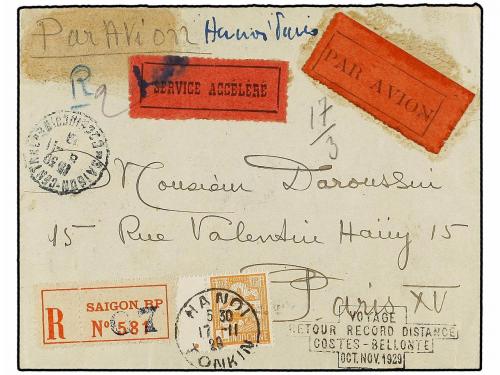 Par Avion
Hanoi Paris
R
SERVICE ACCÉLÉRÉ
PAR AVION
17/3
Monsieur Daroussin
15 Rue Valentin Haüy 15
Paris XV
SAIGON RP
R
Nº 581
HANOI
5 30
17 - 11
29
TONKIN
INDOCHINE
VOYAGE
RETOUR RECORD DISTANCE
COSTES-BELLONTE
OCT. NOV. 1929